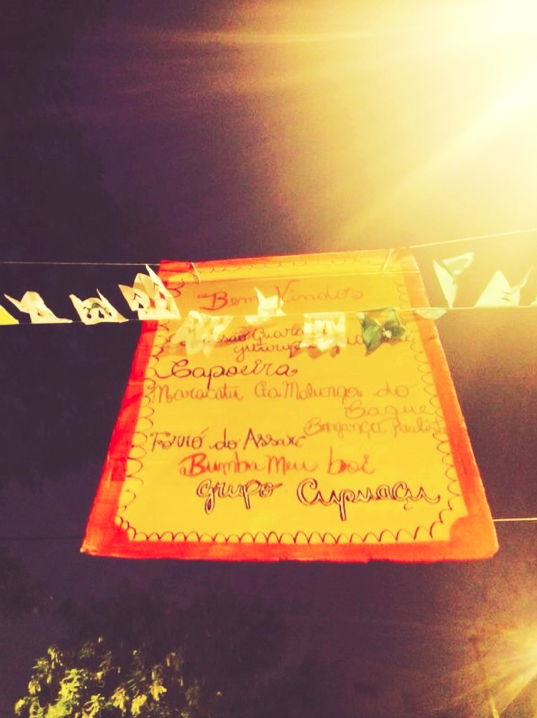 "Bem Vindos
Capoeira
Maracatu Cia Malungos do
Baque
Bragança Paulista
Forró do Assaré
Bumba meu boi
grupo Cupuaçu